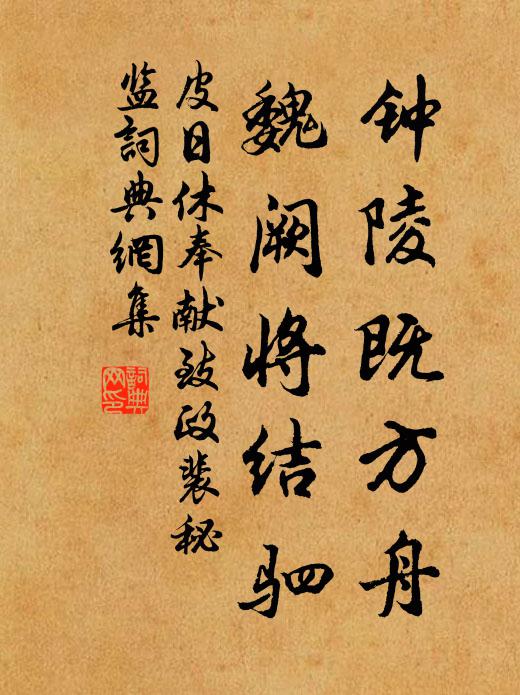 钟陵既方舟
魏阙将结驷
皮日休奉献致政裴秘
监詞典網集
詞典网印